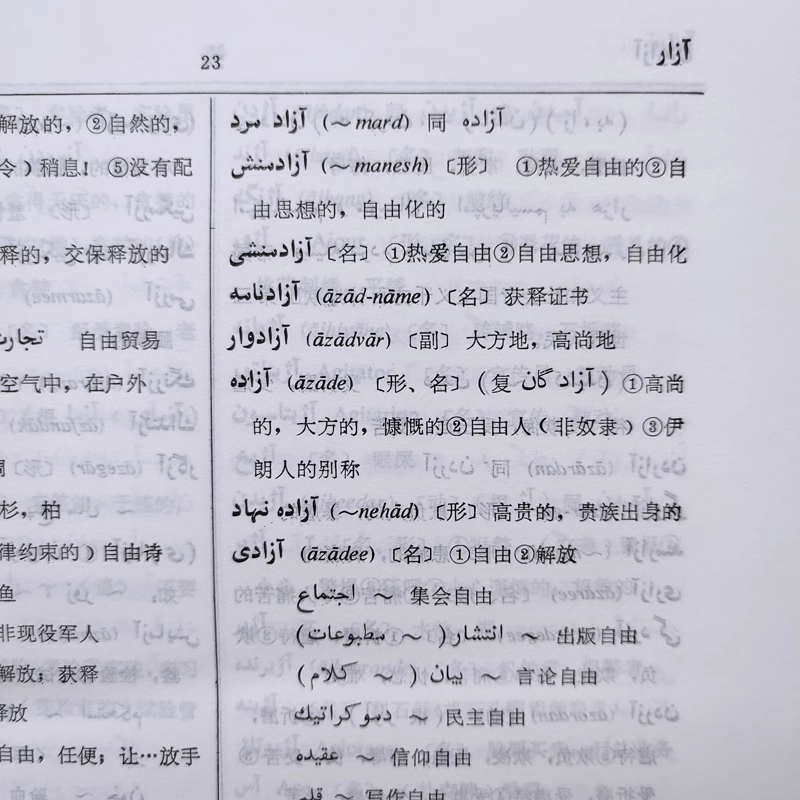 23
آزار
解放的，②自然的，
令）稍息！ ⑤没有配
释的，交保释放的
تجارت 自由贸易
空气中，在户外
杉，柏
律约束的）自由诗
鱼
非现役军人
解放；获释
释放
自由，任便；让…放手
آزاد مرد (～mard) 同 آزاده
آزادمنش (～manesh)〔形〕 ①热爱自由的②自
由思想的，自由化的
آزادمنشی〔名〕①热爱自由②自由思想，自由化
آزادنامه (āzād-nāme)〔名〕获释证书
آزادوار (āzādvār)〔副〕大方地，高尚地
آزاده (āzāde)〔形、名〕(复 آزادگان) ①高尚
的，大方的，慷慨的②自由人（非奴隶）③伊
朗人的别称
آزاده نهاد (～nehād)〔形〕高贵的，贵族出身的
آزادی (āzādee)〔名〕①自由②解放
اجتماع ～ 集会自由
انتشار (～ مطبوعات) ～ 出版自由
بیان (～ کلام) ～ 言论自由
دموکراتیک ～ 民主自由
عقیده ～ 信仰自由
قلم ～ 写作自由